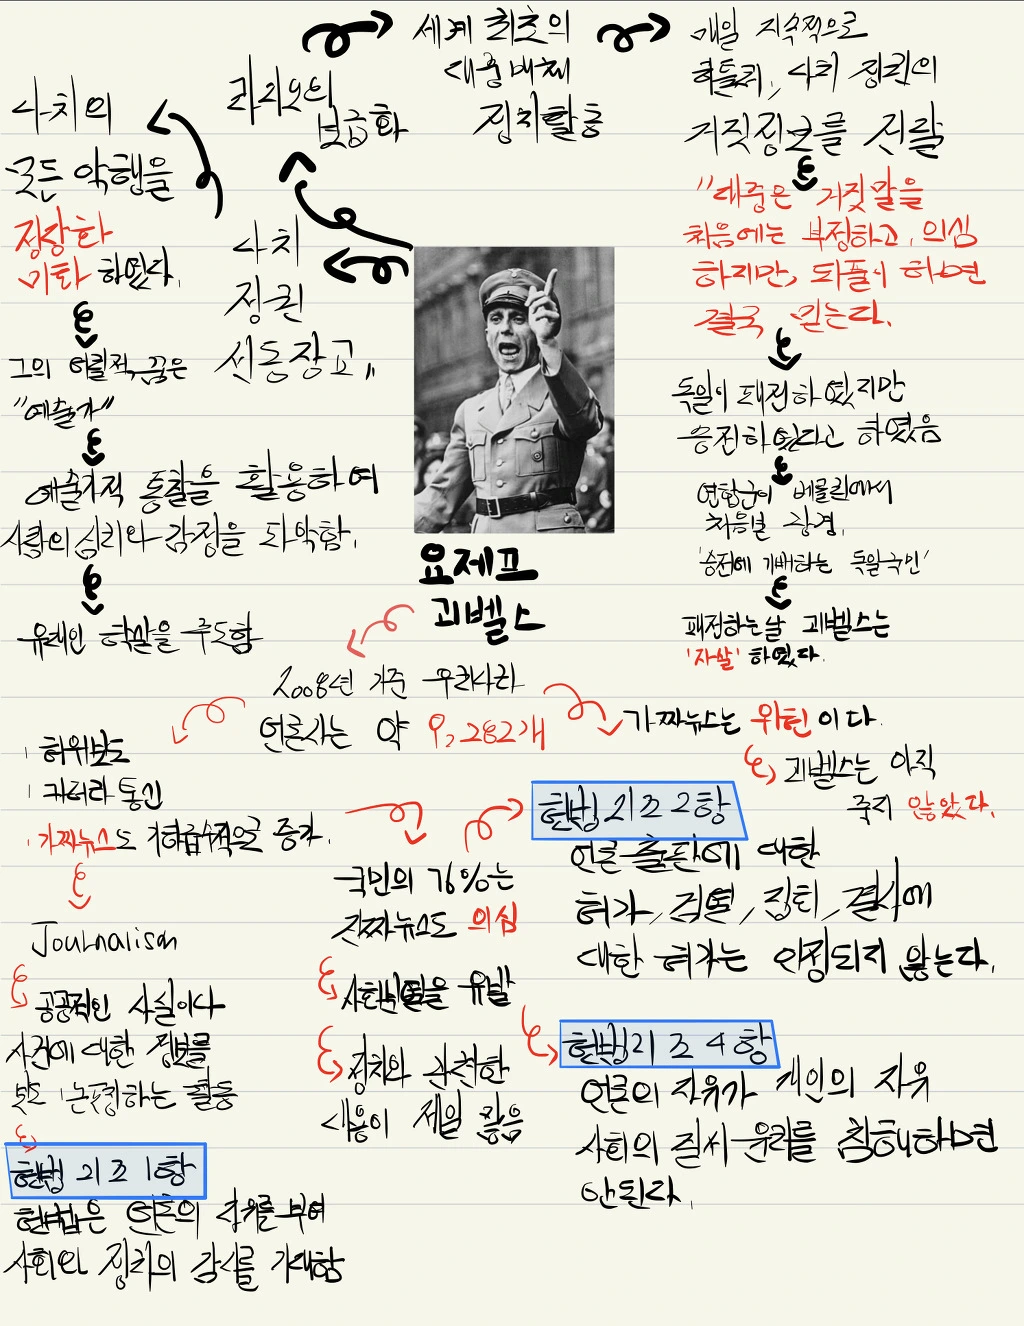 라디오의
보급화
세계 최초의
대중매체
정치활동
매일 지속적으로
히틀러, 나치 정권의
거짓정보를 전달
"대중은 거짓말을
처음에는 부정하고, 의심
하지만, 되풀이 하면
결국 믿는다.
독일이 패전하였지만
승전하였다고 하였음
연합군이 베를린에서
처음본 광경,
'승전에 기뻐하는 독일국민'
패전하는날 괴벨스는
'자살' 하였다.
나치의
모든 악행을
정당화
미화 하였다.
그의 어릴적 꿈은
"예술가"
예술가적 통찰을 활용하여
사람의 심리와 감정을 파악함.
유태인 학살을 주도함
나치
정권
선동장고,,
요제프
괴벨스
2008년 기준 우리나라
언론사는 약 9,282개
허위보도
카더라 통신
가짜뉴스도 기하급수적으로 증가
Journalism
공공적인 사실이다
사건에 대한 정보를
보도 논평하는 활동
헌법 21조 1항
헌법은 언론의 자유를 부여
사회와 정치의 감시를 기대함
국민의 76%는
진짜뉴스도 의심
사회분열을 유발
정치와 관련한
내용이 제일 많음
가짜뉴스는 위헌이다.
괴벨스는 아직
죽지 않았다.
헌법 21조 2항
언론 출판에 대한
허가, 검열, 집회, 결사에
대한 허가는 인정되지 않는다.
헌법 21조 4항
언론의 자유가 개인의 자유
사회의 질서 윤리를 침해하면
안된다.